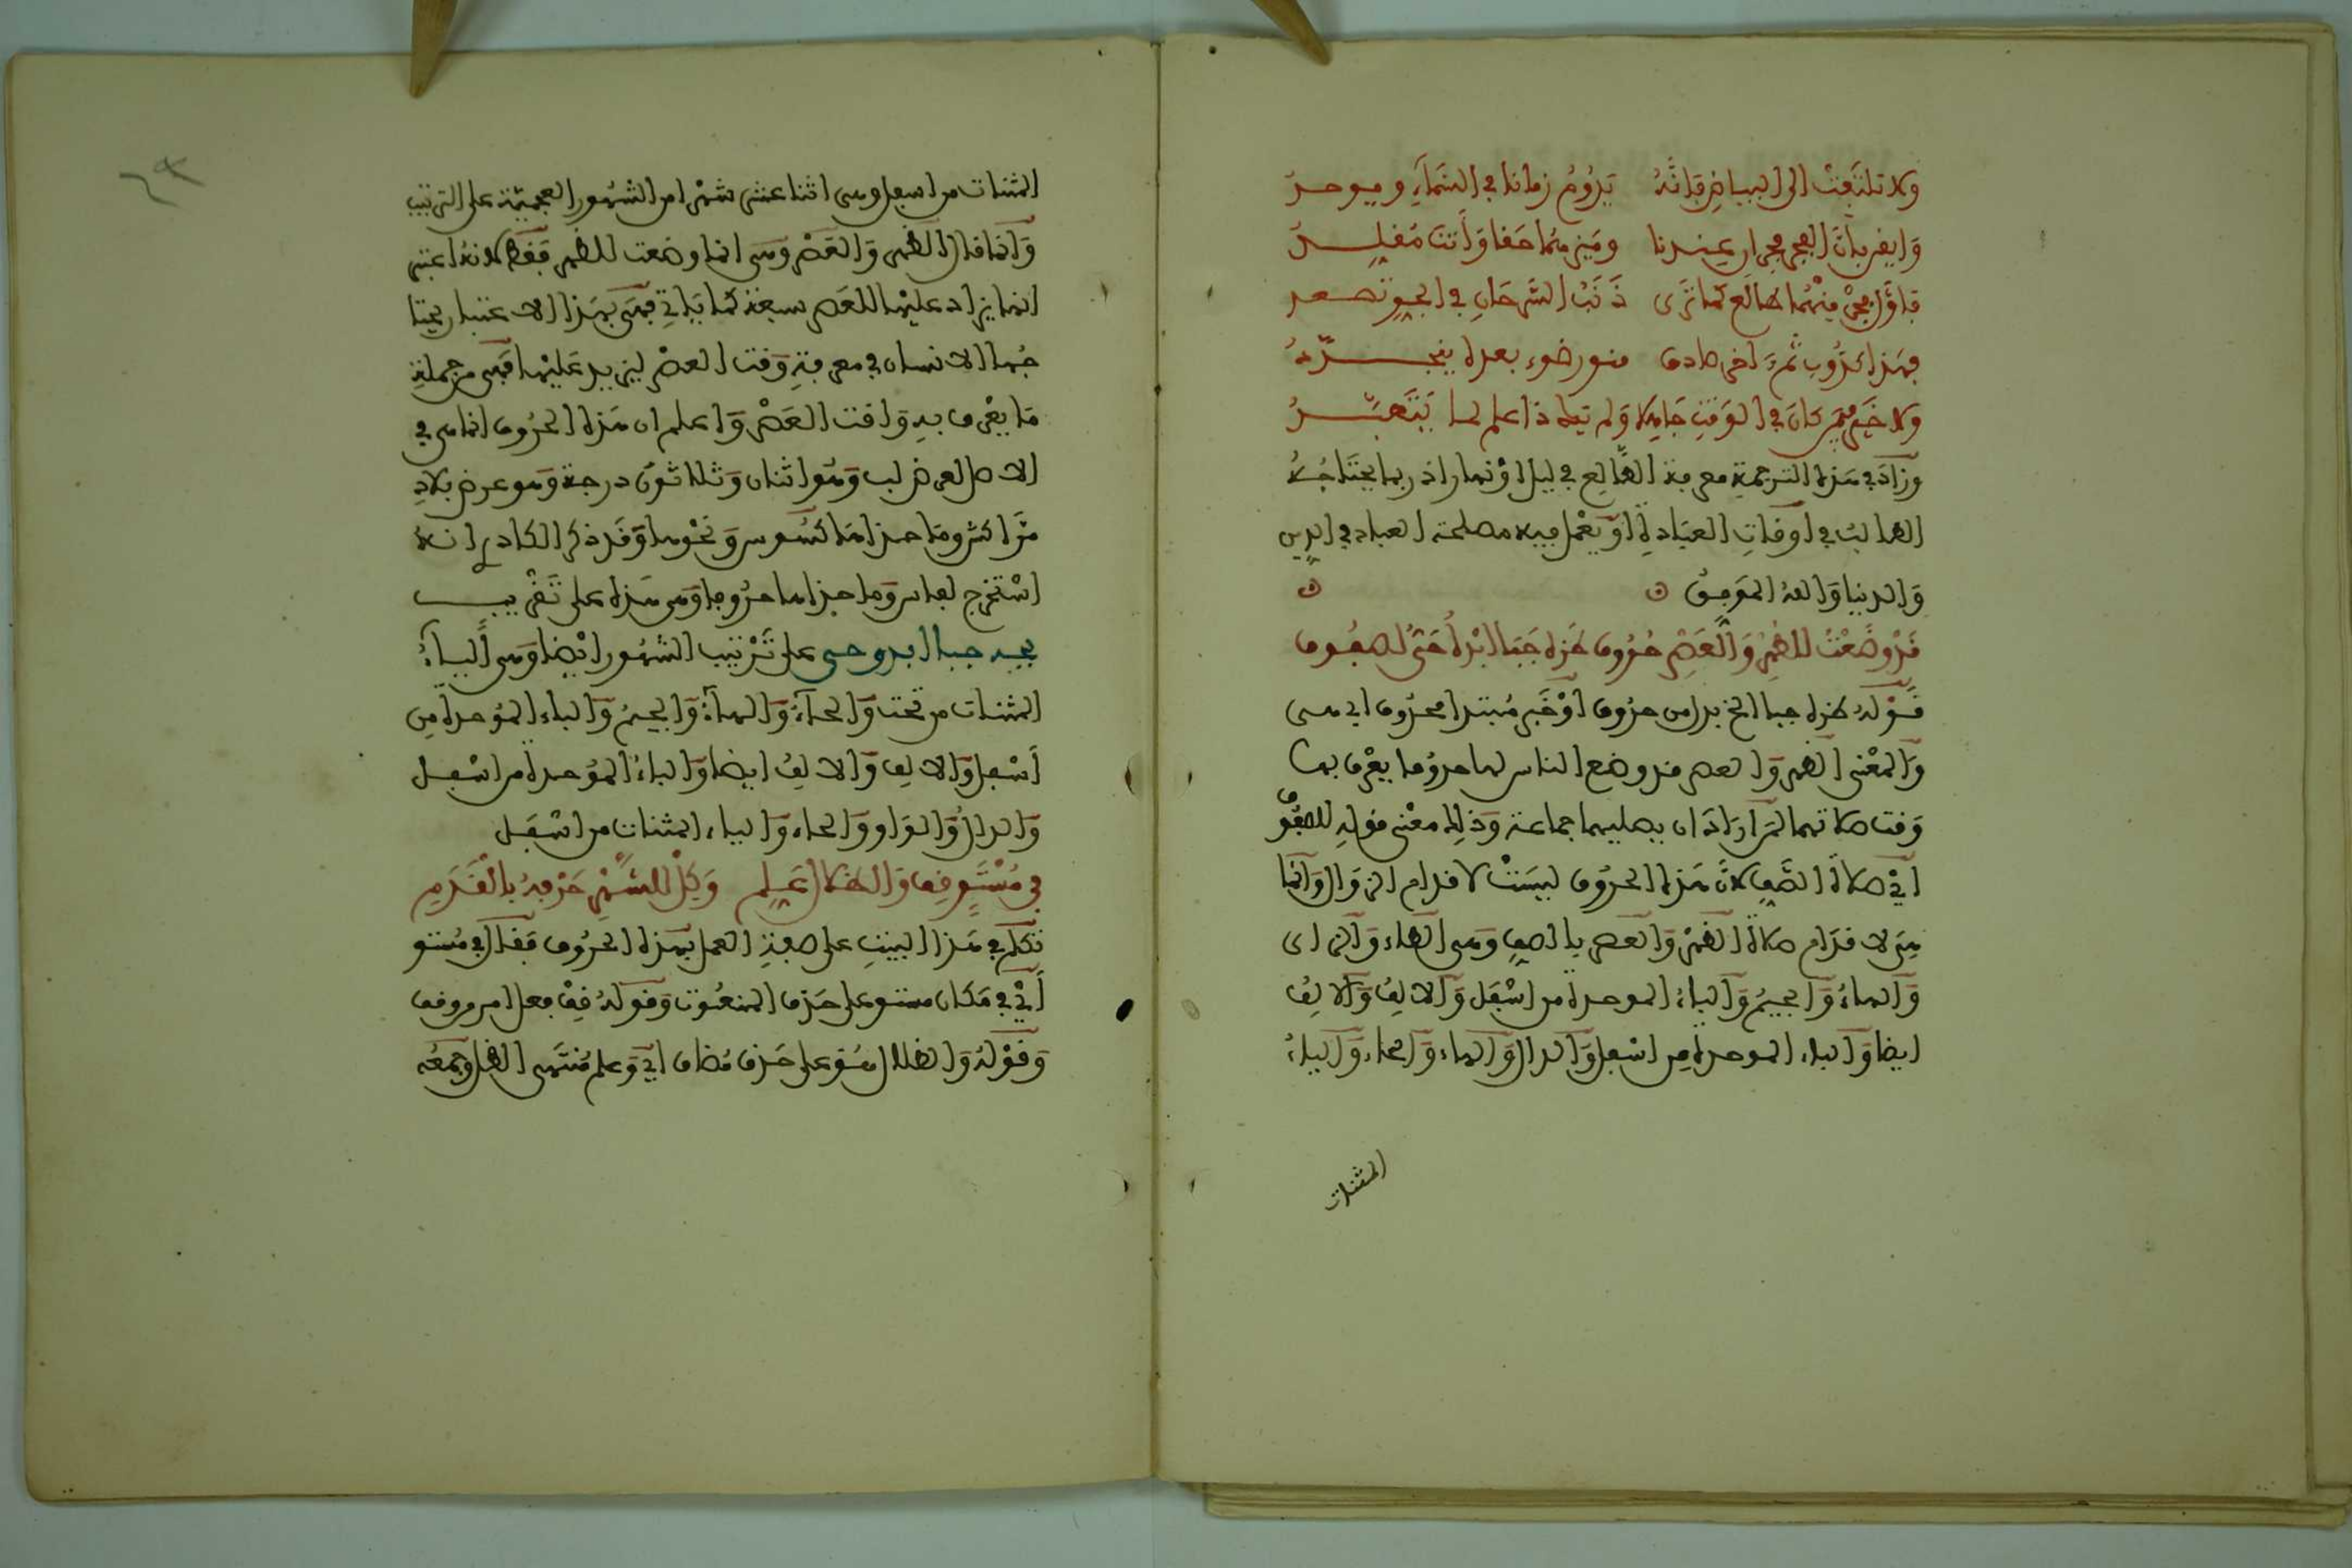 ولا تلتفت الى البياض فانه يدوم زمانا في السماء ويوجد
وايقن بان الفجر فجران عندنا وميزهما حقا وأنت مقلد
فأول فجر منهما طالع كما ترى ذنب السرحان في الجو تصعد
فهذا كذوب ثم آخر صادق منور ضوء بعده يتجدد
ولا خير فيمن كان في الوقت جاهلا ولم يك ذا علم لما يتعبد
وزاد في هذه الترجمة معرفة الطالع في ليل او نهار اذ ربما يحتاجه
الطالب في اوقات العبادة او يعمل فيه مصلحة العباد في الدين
والدنيا والله الموفق
قد وضعت للظهر والعصر حروف طزه جبا ابدا حتى لصفوف
قوله طزه جبا الخ بدل من حروف او خبر مبتدا محذوف اي هي
والمعنى الظهر والعصر قد وضع الناس لها حروفا يعرف بها
وقت صلاتهما لمن اراد ان يصليهما جماعة وذلك معنى قوله للصفوف
اي صلاة الصف لان هذه الحروف ليست لاقدام الزوال وانما
هي لاقدام صلاة الظهر والعصر بالصف وهي الطاء والزاى
والهاء والجيم والباء الموحدة من اسفل والالف والالف
ايضا والباء الموحدة من اسفل والدال والهاء والحاء والياء
المثنات
المثنات من اسفل وهي اثنا عشر شهرا من الشهور العجمية على الترتيب
وانما قال الظهر والعصر وهي انما وضعت للظهر فقط لانه اعتبر
انما يزاد عليها للعصر سبعة كما ياتي فهي بهذا الاعتبار يحتا
جها الانسان في معرفة وقت العصر ليزيد عليها فهي من جملة
ما يعرف به وقت العصر واعلم ان هذه الحروف انما هي في
الاصل لعرض لب وهو اثنان وثلاثون درجة وهو عرض بلاد
مراكش وما حذاها كسوس ونحوها وقد ذكر الكادم انه
استخرج لفاس وما حذاها حروفا وهي هذه على تقريب
يحه جبا ابدوحى على ترتيب الشهور ايضا وهي الياء
المثنات من تحت والحاء والهاء والجيم والباء الموحدة من
اسفل والالف والالف ايضا والباء الموحدة من اسفل
والدال والواو والحاء والياء المثنات من اسفل
في مستو قف والظلال علم وكل للشهر حرفه بالقدم
تكلم في هذا البيت على صفة العمل بهذه الحروف فقال في مستو
أي في مكان مستو على حذف المنعوت وقوله قف فعل امر من وقف
وقوله والظلال هو على حذف مضاف اي وعلم منتهى الظل وجمعه